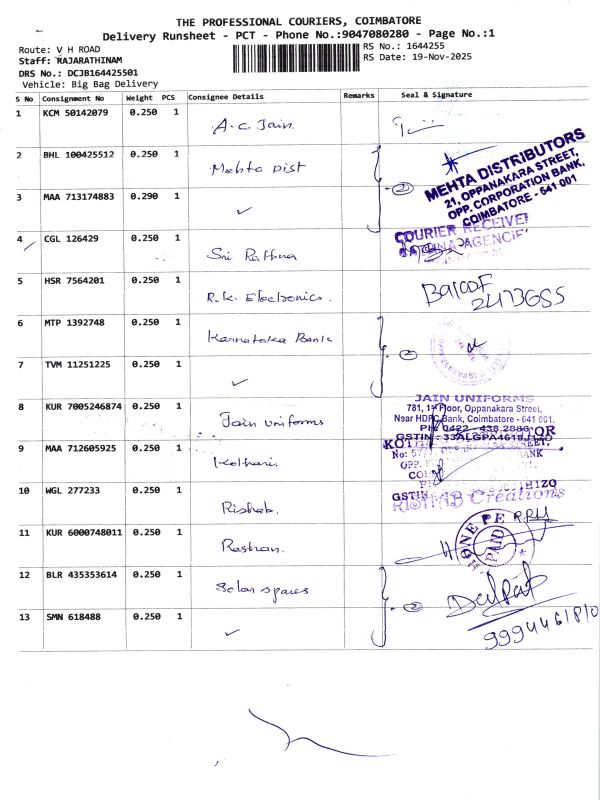 THE PROFESSIONAL COURIERS, COIMBATORE
Delivery Runsheet - PCT - Phone No.:9047080280 - Page No.:1
Route: V H ROAD
RS No.: 1644255
Staff: RAJARATHINAM
RS Date: 19-Nov-2025
DRS No.: DCJB164425501
Vehicle: Big Bag Delivery
S No Consignment No Weight PCS Consignee Details Remarks Seal & Signature
1 KCM 50142079 0.250 1 A.C. Jain.
2 BHL 100425512 0.250 1 Mehta Dist 2
MEHTA DISTRIBUTORS
21, OPPANAKARA STREET,
OPP. CORPORATION BANK,
COIMBATORE - 641 001
3 MAA 713174883 0.290 1 ✓
COURIER RECEIVED
4 CGL 126429 0.250 1 Sri Rathna
AGENCIE
5 HSR 7564201 0.250 1 R.K. Electronics.
6 MTP 1392748 0.250 1 Karnataka Bank 2
7 TVM 11251225 0.250 1 ✓
8 KUR 7005246874 0.250 1 Jain Uniforms
JAIN UNIFORMS
781, 1st Floor, Oppanakara Street,
Near HDFC Bank, Coimbatore - 641 001.
9 MAA 712605925 0.250 1 Kothari
10 WGL 277233 0.250 1 Rishab.
GSTIN
RISHAB Creations
11 KUR 6000748011 0.250 1 Roshan.
PAID
12 BLR 435353614 0.250 1 Solar spares 2
13 SMN 618488 0.250 1 ✓